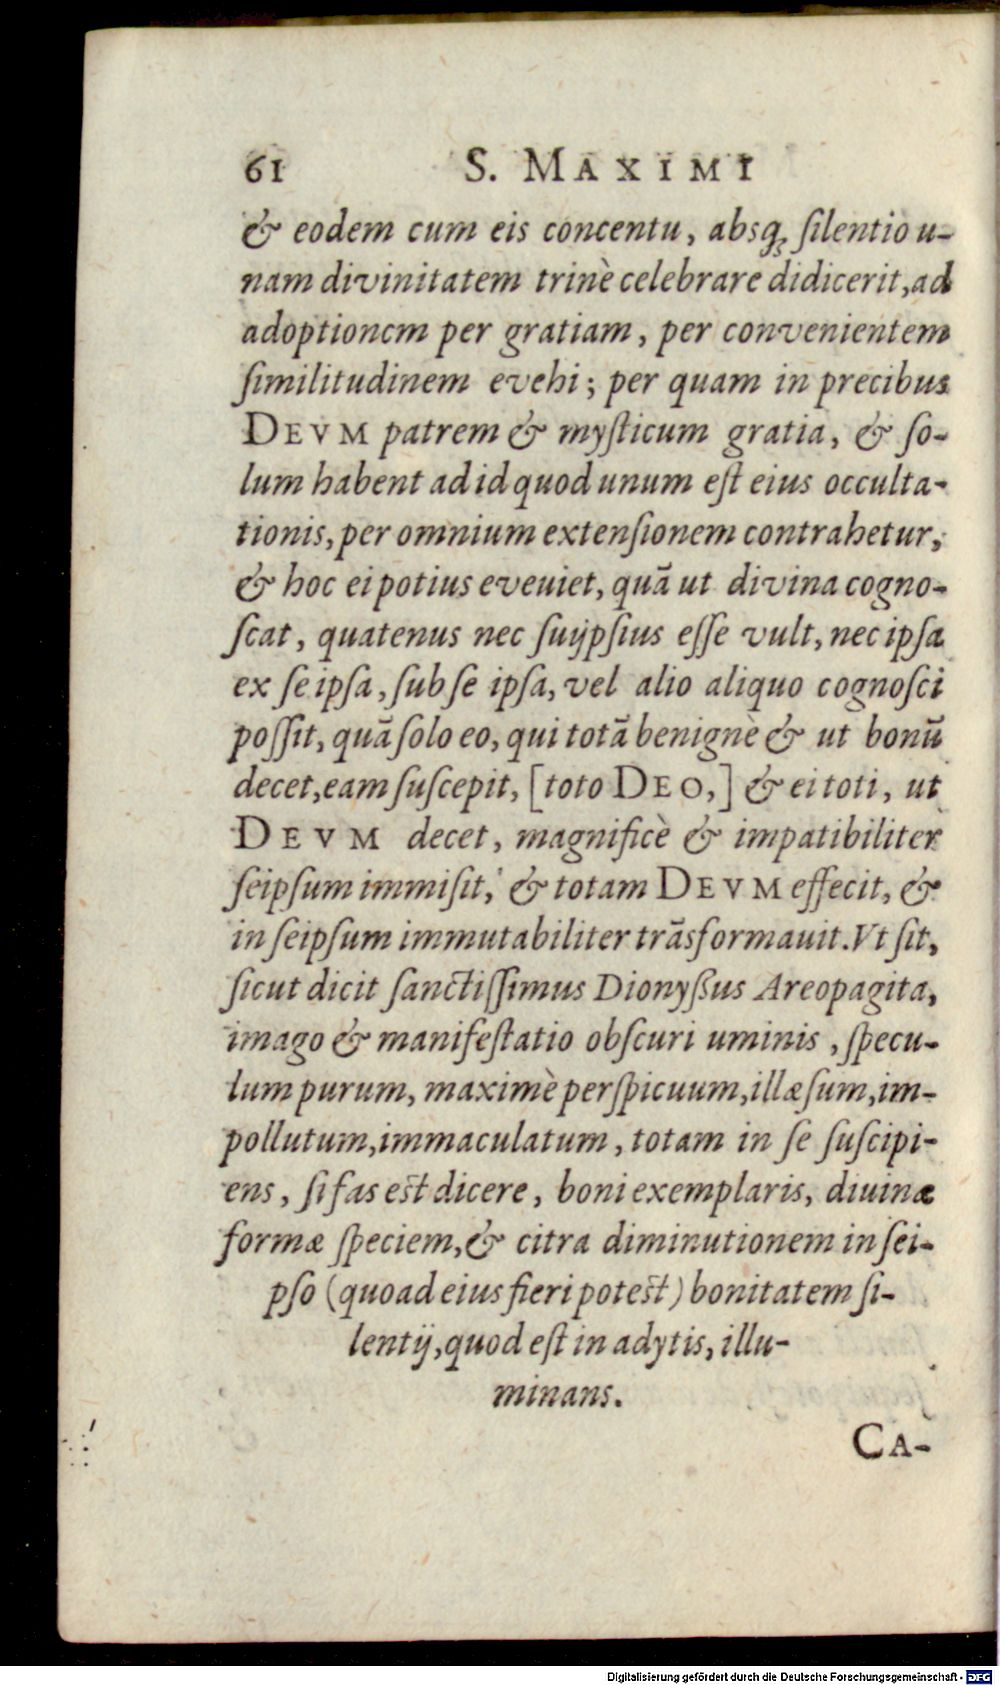 61 S. MAXIMI
& eodem cum eis concentu, absq; ſilentio u-
nam divinitatem trinè celebrare didicerit, ad
adoptionem per gratiam, per convenientem
ſimilitudinem evehi; per quam in precibus
DEVM patrem & myſticum gratia, & ſo-
lum habent ad id quod unum eſt eius occulta-
tionis, per omnium extenſionem contrahetur,
& hoc ei potius eveuiet, quã ut divina cogno-
ſcat, quatenus nec ſuijpſius eſſe vult, nec ipſa
ex ſe ipſa, ſub ſe ipſa, vel alio aliquo cognoſci
poſſit, quã ſolo eo, qui totã benignè & ut bonũ
decet, eam ſuſcepit, [toto DEO,] & ei toti, ut
DEVM decet, magnificè & impatibiliter
ſeipſum immiſit, & totam DEVM effecit, &
in ſeipſum immutabiliter trãsformauit. Vt ſit,
ſicut dicit ſanctiſſimus Dionyßus Areopagita,
imago & manifeſtatio obſcuri uminis, ſpecu-
lum purum, maximè perſpicuum, illæſum, im-
pollutum, immaculatum, totam in ſe ſuſcipi-
ens, ſi fas est dicere, boni exemplaris, diuinæ
formæ ſpeciem, & citra diminutionem in ſei-
pſo (quoad eius fieri potest) bonitatem ſi-
lentij, quod eſt in adytis, illu-
minans.
CA-
Digitalisierung gefördert durch die Deutsche Forschungsgemeinschaft - DFG